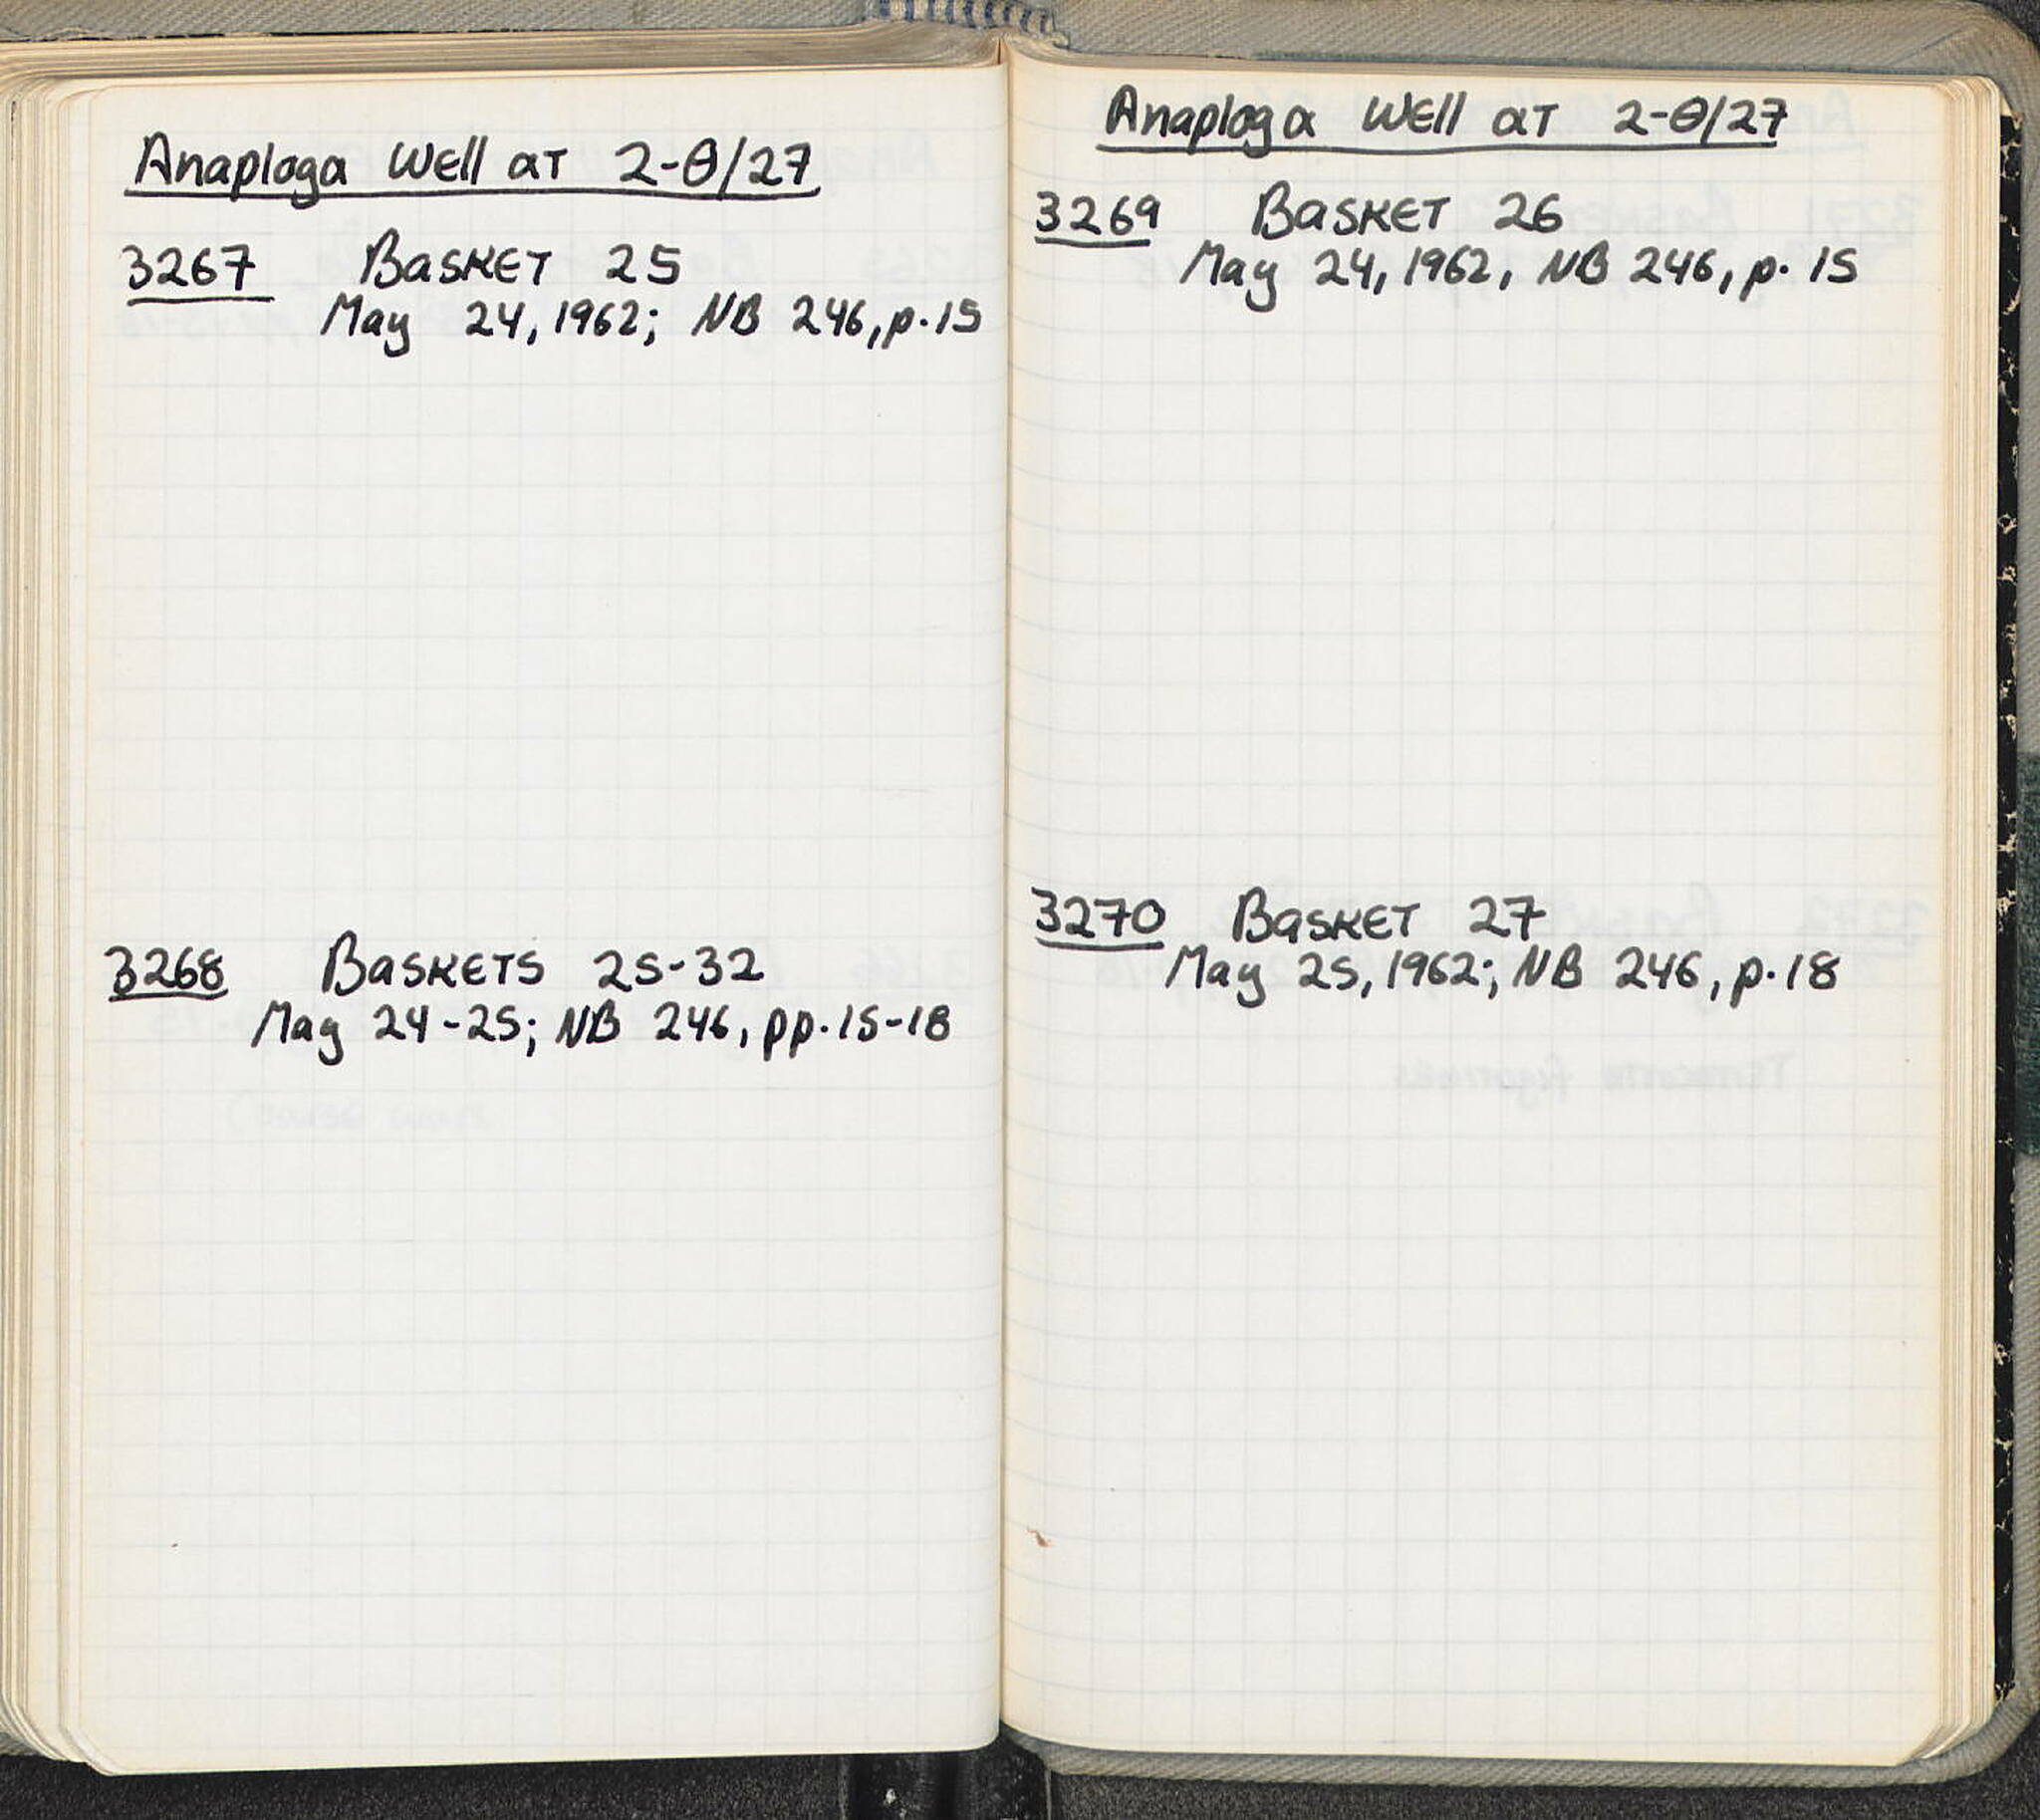 Anaploga Well at 2-Θ/27
3267 Basket 25
May 24, 1962; NB 246, p. 15
3268 Baskets 25-32
May 24-25; NB 246, pp. 15-18
Anaploga Well at 2-Θ/27
3269 Basket 26
May 24, 1962, NB 246, p. 15
3270 Basket 27
May 25, 1962; NB 246, p. 18